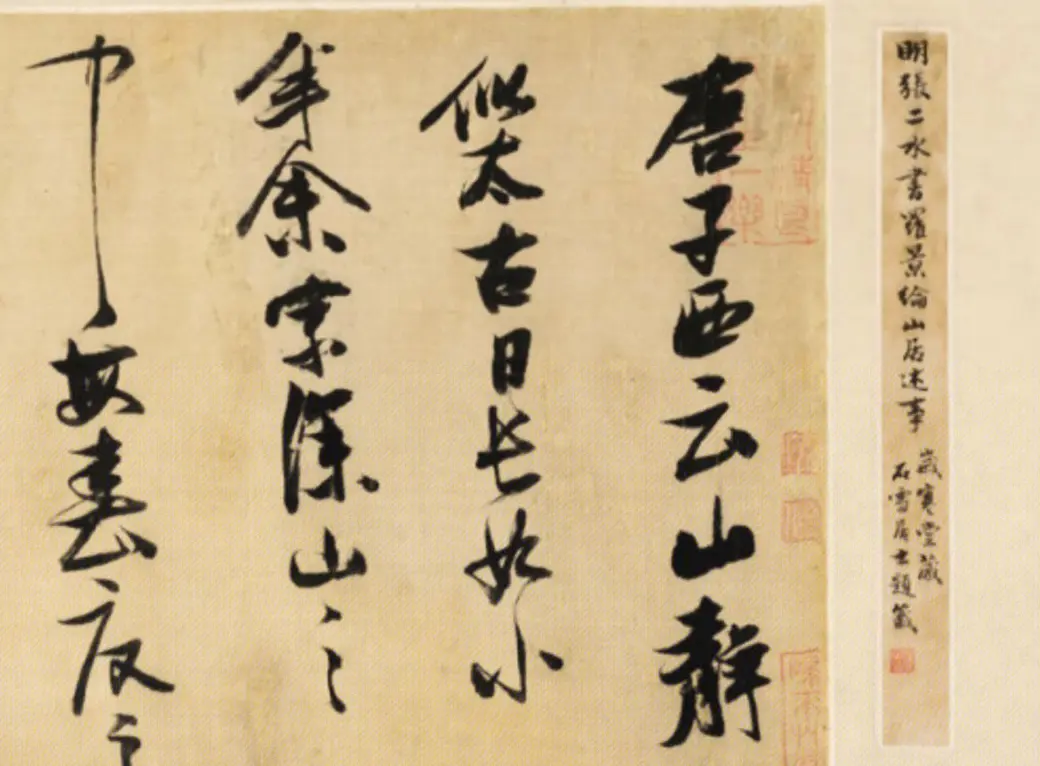 明張二水書羅景綸山居述事
歲寒堂藏
石雪居士題籤
唐子西云山靜
似太古日長如小
年余家深山之
中每春夏之